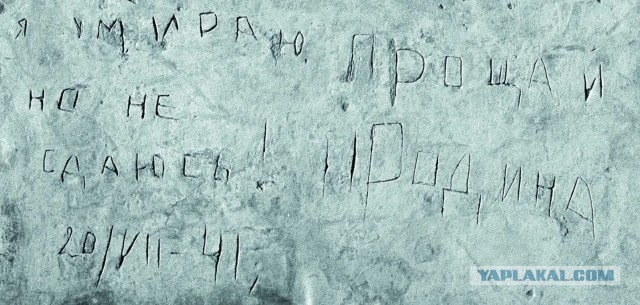 Я УМИРАЮ
НО НЕ
СДАЮСЬ!
ПРОЩАЙ
РОДИНА
20/VII-41,
YAPLAKAL.COM